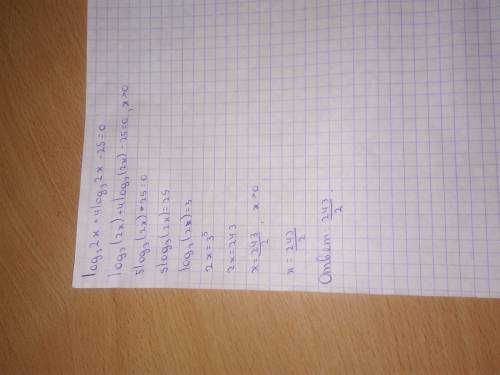 log₃2x + 4log₃2x - 25 = 0
log₃(2x) + 4log₃(2x) - 25 = 0, x > 0
5log₃(2x) - 25 = 0
5log₃(2x) = 25
log₃(2x) = 5
2x = 3⁵
2x = 243
x = 243/2, x > 0
x = 243/2
Ответ 243/2.